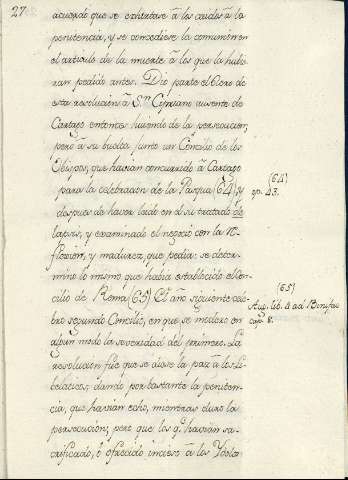 27
acuerdo que se exhortase â los caidos â la
penitencia, y se concediese la comunion en
el articulo de la muerte â los que la hubie
ran pedido antes. Dio parte el Clero de
esta resolucion â Sn. Cipriano ausente de
Cartago entonces huiendo de la persecucion;
pero â su buelta juntó un Concilio de los
Obispos, que havian concurrido â Cartago
para la celebracion de la Pasqua (64), y
despues de haver leido en el su tratado de
lapsis, y examinado el negocio con la re-
flexion, y madurez, que pedia: se deter-
minó lo mismo que habia establecido el Con-
cilio de Roma (65) El año siguiente cele-
bro segundo Concilio, en que se moderó en
algun modo la severidad del primero. La
resolucion fue que se diese la paz â los Li-
belaticos; dando por bastante la peniten-
cia, que havian echo, mientras duró la
persecucion; pero que los q.e havian sa-
crificado, ô ofrecido incienso â los Ydolos
(64)
ep. 43.
(65)
Aug. lib. 4 ad Bonifac
cap. 8.